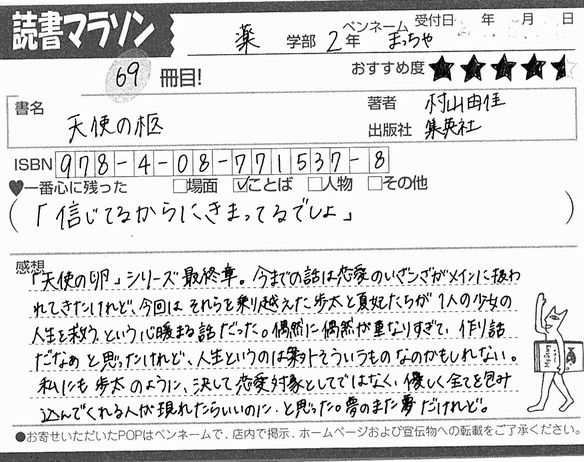 読書マラソン 薬 学部 2年 ペンネーム まっちゃ 受付日 年 月 日
69 冊目! おすすめ度 ★★★★★
書名 天使の柩 著者 村山由佳
出版社 集英社
ISBN 978-4-08-771537-8
♥一番心に残った □場面 ☑ことば □人物 □その他
(「信じてるからにきまってるでしょ」)
感想
「天使の卵」シリーズ最終章。今までの話は恋愛のいざこざがメインに扱わ
れてきたけれど、今回はそれらを乗り越えた歩太と夏妃たちが1人の少女の
人生を救うという心暖まる話だった。偶然に偶然が重なりすぎて、作り話
だなぁと思ったけれど、人生というのは案外そういうものなのかもしれない。
私にも歩太のように、決して恋愛対象としてではなく、優しく全てを包み
込んでくれる人が現れたらいいのに…と思った。夢のまた夢だけれど。
●お寄せいただいたPOPはペンネームで、店内で掲示、ホームページおよび宣伝物への転載をご了承ください。